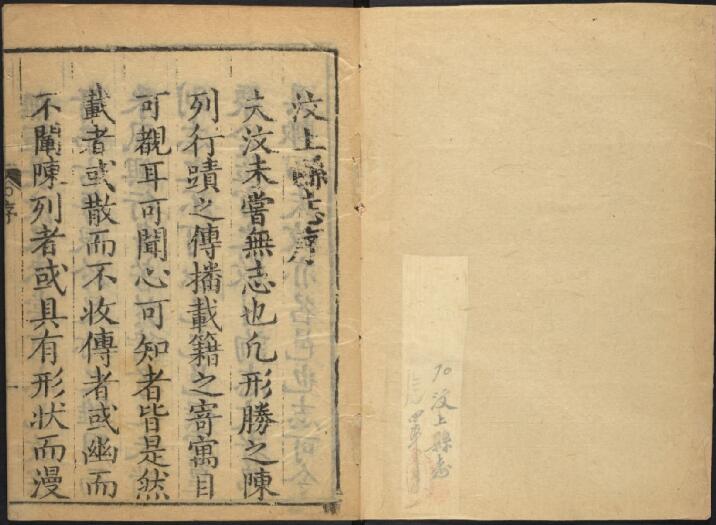 汶上縣志序
夫汶未嘗無志也凢形勝之陳
列行蹟之傳播載籍之寄寓目
可覩耳可聞心可知者皆是然
載者或散而不收傳者或幽而
不闡陳列者或具有形狀而漫
序
70 汶上縣志